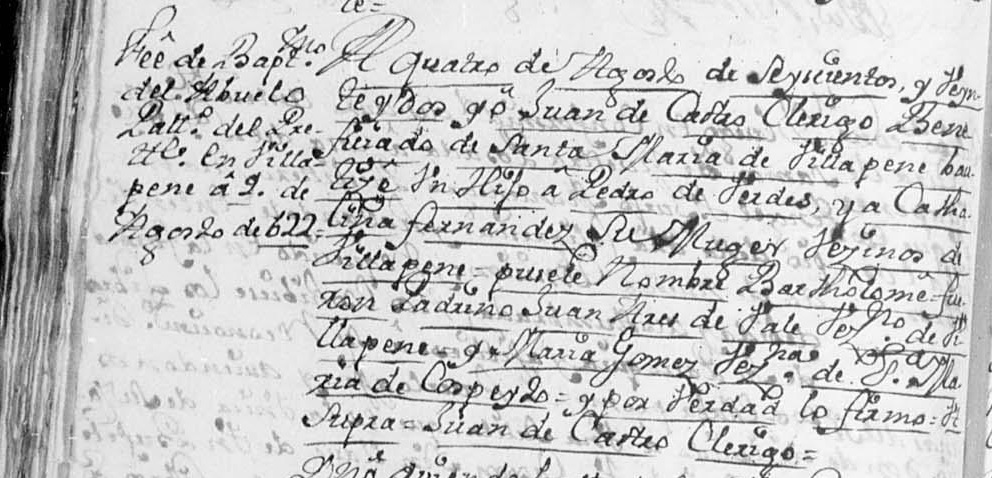 te=
Feê de Bapt.mo
del Abuelo
Patt.o del Pre-
tt.e en Villa
pene â 2. de
Agosto de 622=
A quatro de Agosto de Seyscientos, y Veyn-
te y dos yo Juan de Castro Clerigo Bene
ficiado de Santa Maria de Villapene bau
tize Vn Hijo a Pedro de Verdes, y a Catha-
lina fernandez Su Muger Vezinos de
Villapene= pusele Nombre Bartholome= fue
ron Padrino Juan de Vale Vez.no de Vi
llapene= y Maria Gomez Vez.na de S. Ma
ria de Cospeyto= y por Verdad lo firmo= Vt
Supra= Juan de Castro Clerigo=